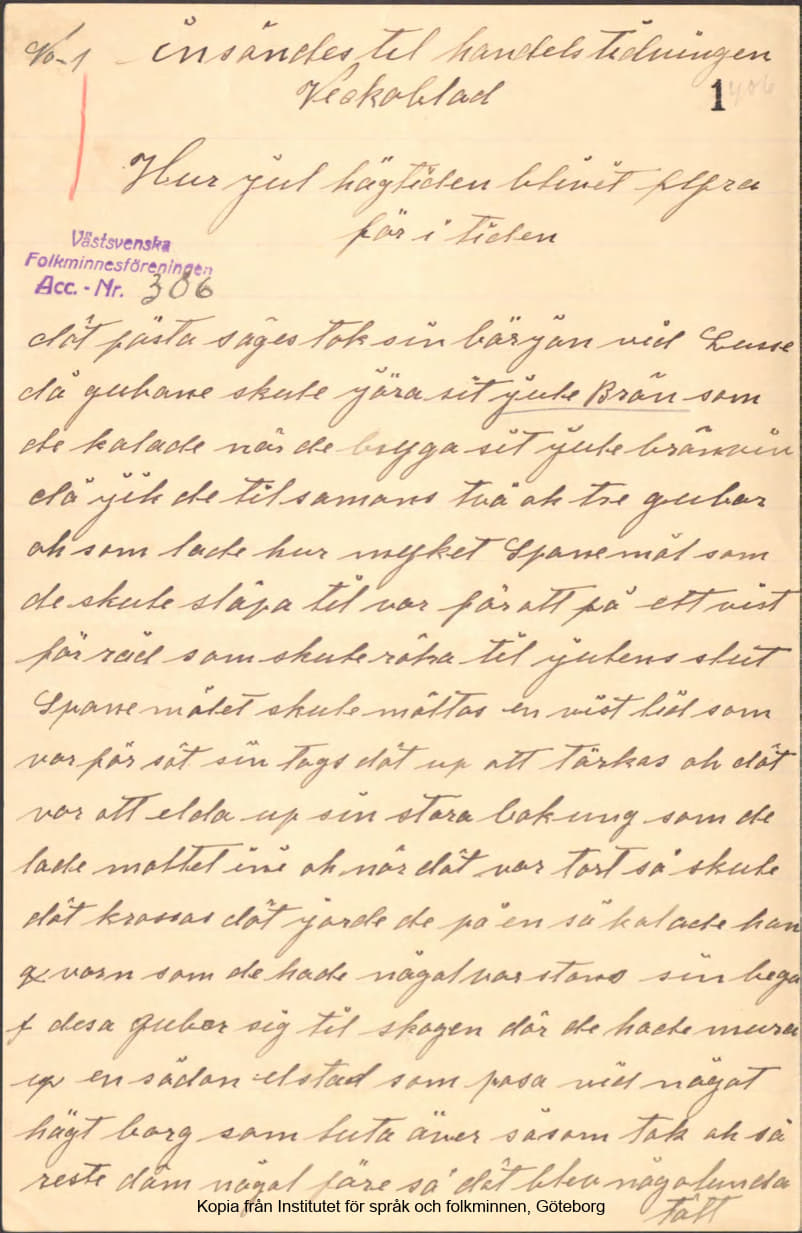 No-1 insändes til handelstidningen
Veckoblad
1 406
Hur jul högtiden blivit fyra
för i tiden
Västsvenska
Folkminnesföreningen
Acc. - Nr. 306
dät fösta säges tok sin början vid Lusse
då gubane skule jöra sit jule Brän som
de kalade när de brygga sit jule brännvin
då jik de tilsamans två ok tre gubar
ok som lade hur myket Spanemål som
de skule släpa til var för att få ett vist
för råd som skule räka til julens slut
Spanemålet skule mältas en vist tid som
var för sät sin togs dät up att tärkas ok dät
var att elda up sin stora bakung som de
lade maltet ini ok när dät var tort så skule
dät krossas dät jorde de på en så kalade han
qvarn som de hade någol var stans sin bega
f desa Gubar sig til skogen där de hade mura
up en sådan elstad som pasa vid något
högt barg som luta över såsom tak ok så
reste däm någol före så dät blev någolunda
tätt
Kopia från Institutet för språk och folkminnen, Göteborg